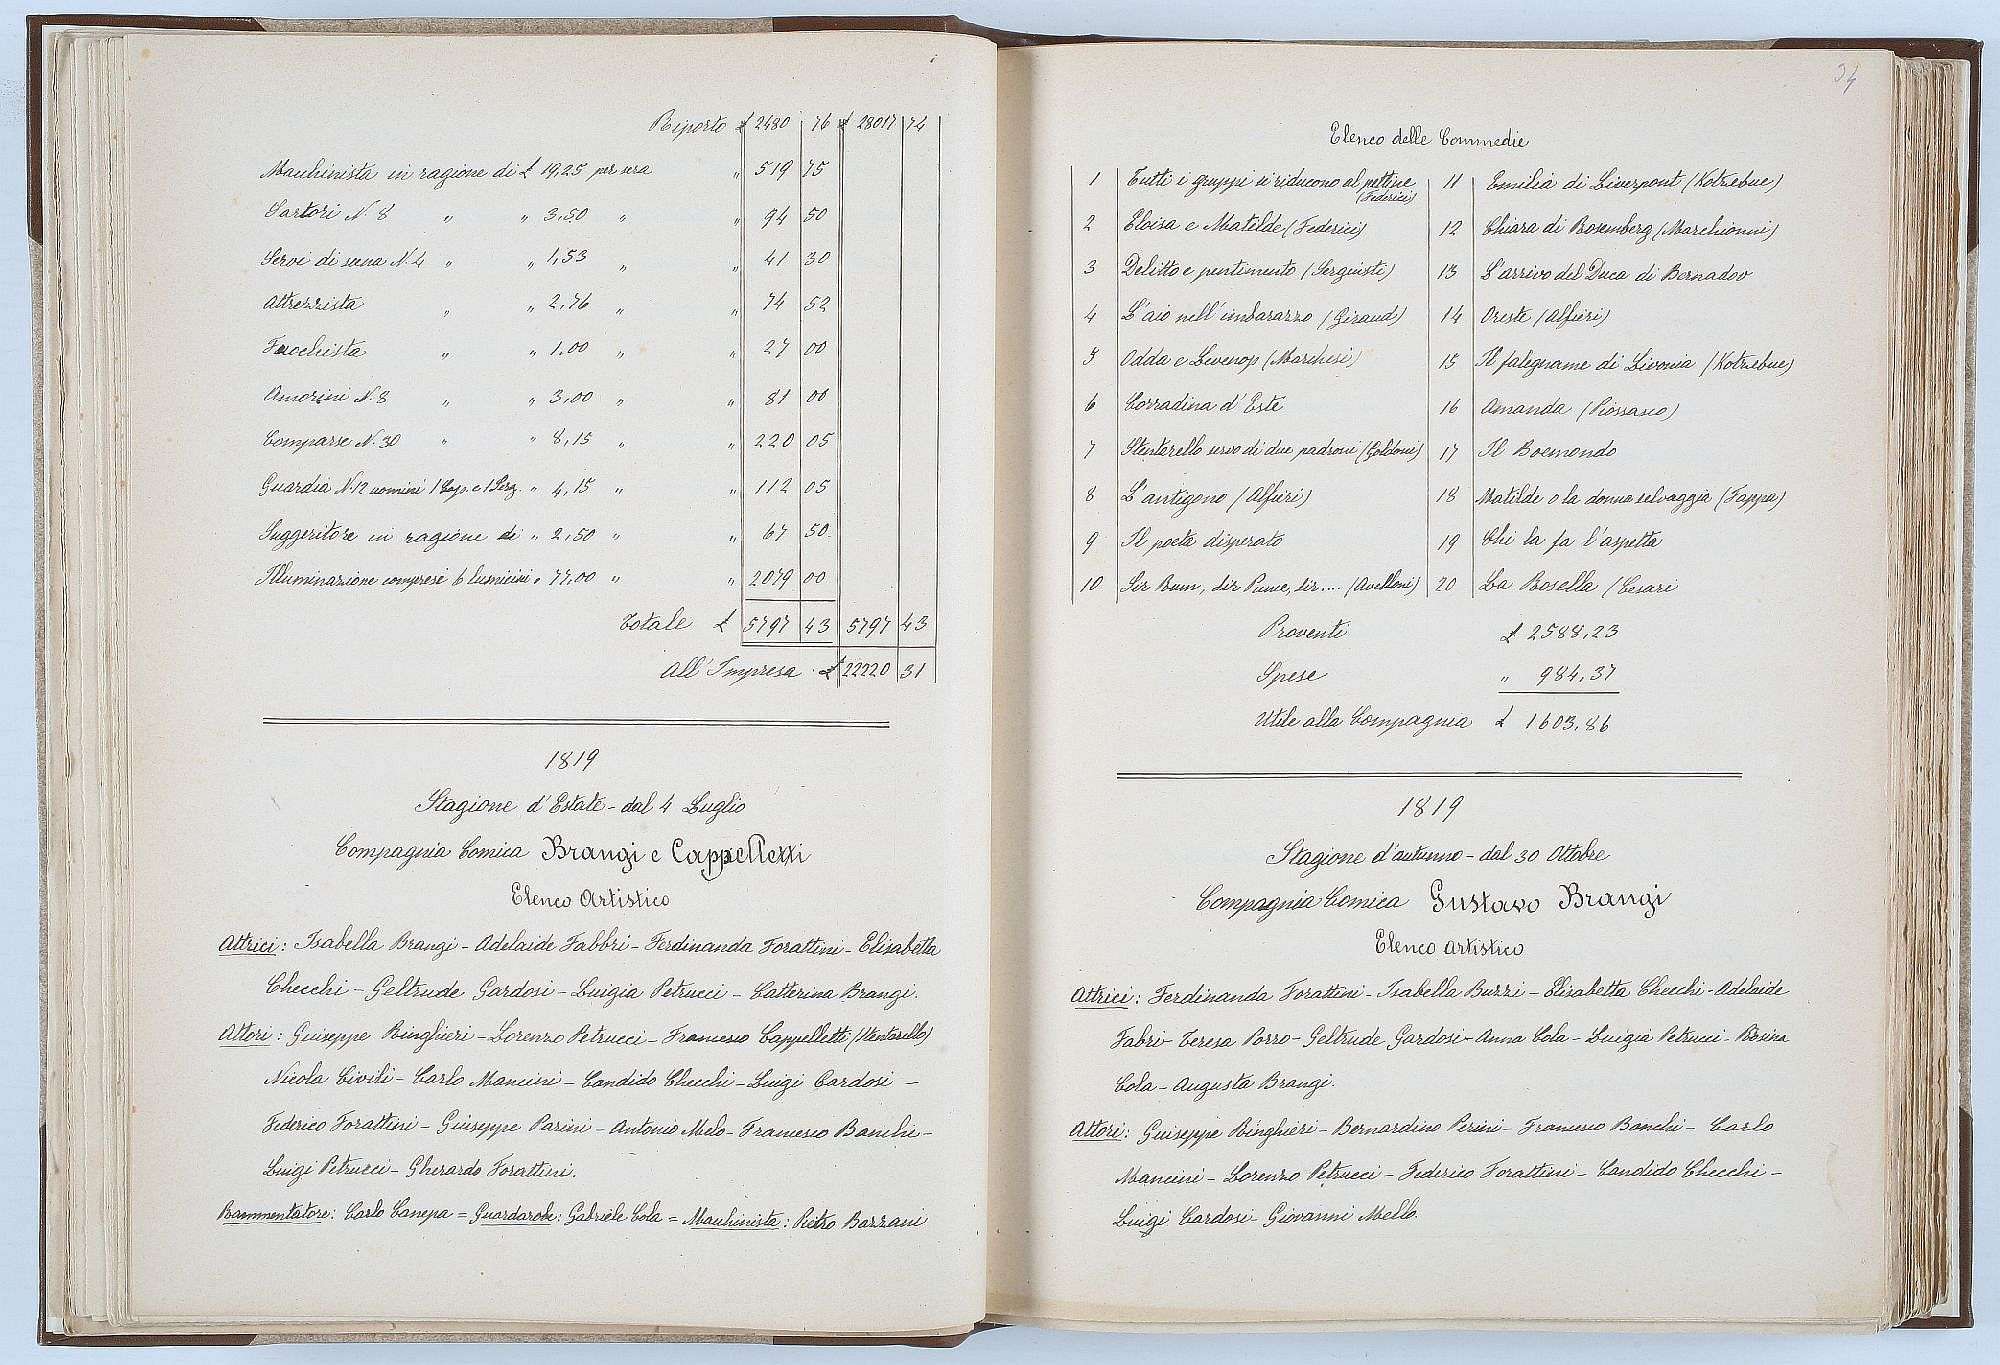 Riporto £ 2480 76 £ 28017 74
Machinista in ragione di £ 19,25 per sera " 519 75
Sartori N. 8 " " 3,50 " " 94 50
Servi di scena N. 4 " " 1,53 " " 41 30
Attrezzista " " 2,76 " " 74 52
Fuochista " " 1,00 " " 27 00
Amorini N. 8 " " 3,00 " " 81 00
Comparse N. 30 " " 8,15 " " 220 05
Guardia N. 12 uomini 1 Cap. e 1 Serg. " 4,15 " " 112 05
Suggeritore in ragione di " 2,50 " " 67 50
Illuminazione compresi 6 lumicini " 77,00 " " 2079 00
Totale £ 5797 43 5797 43
All'Impresa £ 22220 31
1819
Stagione d'Estate - dal 4 Luglio
Compagnia Comica Brangi e Cappelletti
Elenco Artistico
Attrici: Isabella Brangi - Adelaide Fabbri - Ferdinanda Forattini - Elisabetta
Checchi - Geltrude Gardosi - Luigia Petrucci - Catterina Brangi.
Attori: Giuseppe Ringhieri - Lorenzo Petrucci - Francesco Cappelletti (Stentarello)
Nicola Civili - Carlo Mancini - Candido Checchi - Luigi Cardosi -
Federico Forattini - Giuseppe Parini - Antonio Melo - Francesco Banchi -
Luigi Petrucci - Gherardo Forattini.
Rammentatore: Carlo Canepa = Guardarobe: Gabriele Cola = Machinista: Pietro Bazzani
34
Elenco delle Commedie
1 Tutti i gruppi si riducono al pettine
(Federici)
2 Eloisa e Matilde (Federici)
3 Delitto e pentimento (Sergiusti)
4 L'aio nell'imbarazzo (Giraud)
5 Odda e Levenop (Marchesi)
6 Corradina d'Este
7 Stentorello servo di due padroni (Goldoni)
8 L'antigono (Alfieri)
9 Il poeta disperato
10 Ser Bum, Ser Punce, Ser.... (Avelloni)
11 Emilia di Liverpont (Kotzebue)
12 Chiara di Rosemberg (Marchionni)
13 L'arrivo del Duca di Bernadoo
14 Oreste (Alfieri)
15 Il falegname di Livonia (Kotzebue)
16 Amanda (Piossasco)
17 Il Boemondo
18 Matilde o la donna selvaggia (Fappa)
19 Chi la fa l'aspetta
20 La Rosella (Cesari
Proventi £ 2588,23
Spese " 984,37
Utile alla Compagnia £ 1603,86
1819
Stagione d'autunno - dal 30 Ottobre
Compagnia Comica Gustavo Brangi
Elenco artistico
Attrici: Ferdinanda Forattini - Isabella Buzzi - Elisabetta Checchi - Adelaide
Fabri - Teresa Porro - Geltrude Gardosi - Anna Cola - Luigia Petrucci - Rosina
Cola - Augusta Brangi.
Attori: Giuseppe Ringhieri - Bernardino Perini - Francesco Banchi - Carlo
Mancini - Lorenzo Petrucci - Federico Forattini - Candido Checchi -
Luigi Cardosi - Giovanni Mello.